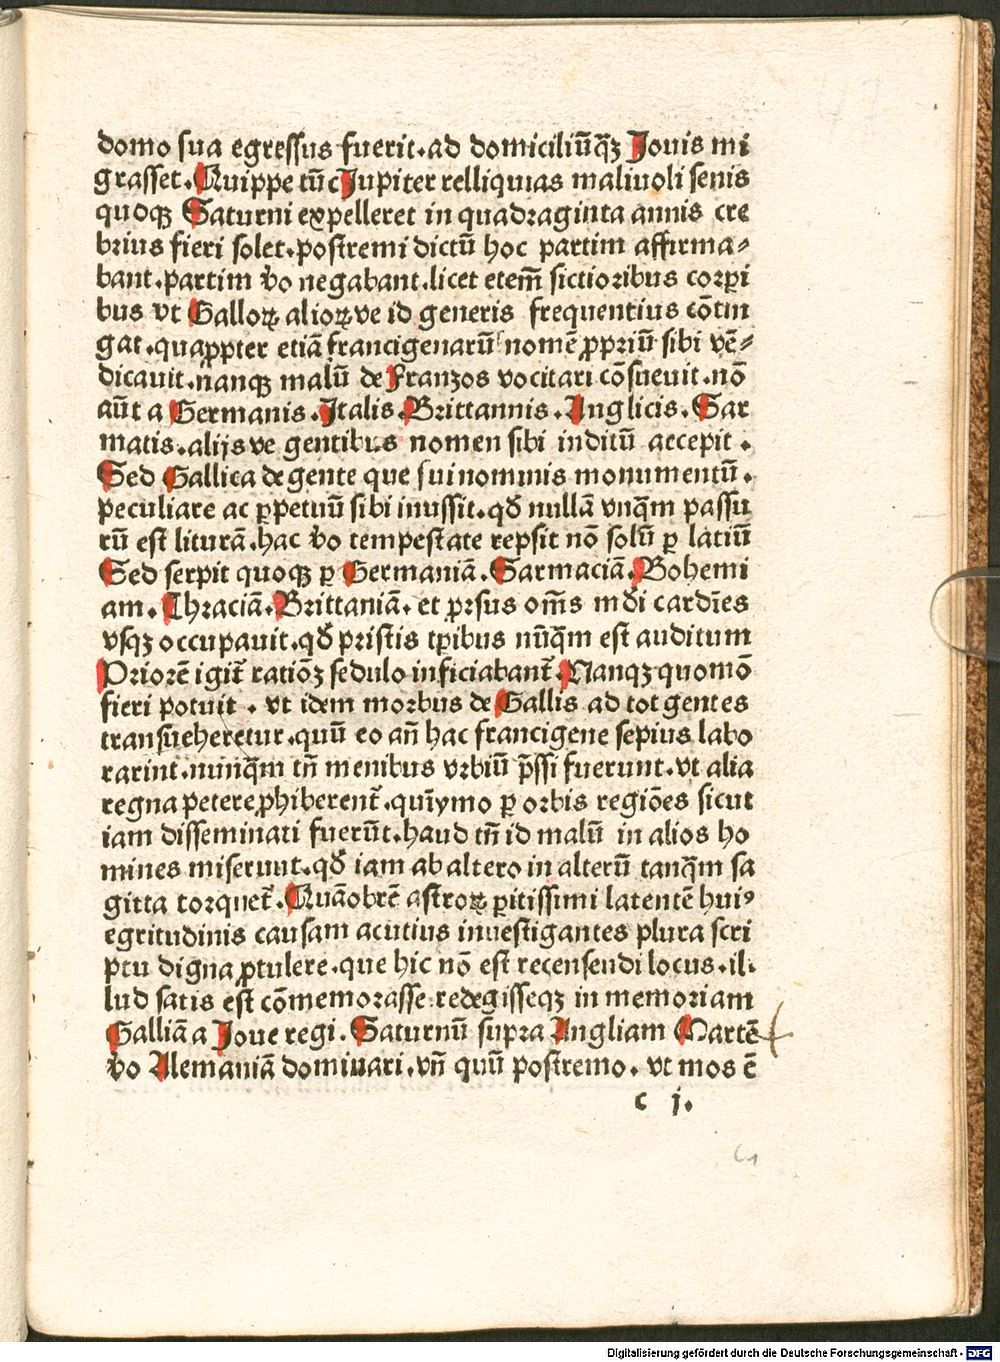 domo sua egressus fuerit.ad domiciliūq̄ꝫ Jouis mi
grasset.Quippe tūc Jupiter relliquias maliuoli senis
quoqꝫ Saturni expelleret in quadraginta annis cre
brius fieri solet.postremi dictū hoc partim affirma⸗
bant.partim v̄o negabant.licet etem̄ sictioribus corꝑi
bus vt Galloꝝ alioꝝve id generis frequentius cōtin
gat.quaꝓpter etiā francigenarū nomē ꝓpriū sibi vē⸗
dicauit.nanqꝫ malū de Franzos vocitari cōsueuit.nō
aūt a Germanis.Italis.Brittannis.Anglicis.Sar
matis.alijsve gentibus nomen sibi inditū accepit.
Sed Gallica de gente que sui nominis monumentū.
peculiare ac ꝑpetuū sibi inussit.qđ nullā vnq̄m passu
rū est liturā.hac v̄o tempestate repsit nō solū ꝑ latiū
Sed serpit quoqꝫ ꝑ Germaniā.Sarmaciā.Bohemi
am.Thraciā.Brittaniā.et ꝓrsus om̄s mūdi cardīes
vsqꝫ occupauit.qđ pristis tꝑibus nūq̄m est auditum
Priorē igit̄ ratiōꝫ sedulo inficiabant̄.Nanqꝫ quomō
fieri potuit.vt idem morbus de Gallis ad tot gentes
transūeheretur.quū eo an̄ hac francigene sepius labo
rarint.nunq̄m tn̄ menibus vrbiū p̄ssi fuerunt.vt alia
regna petere ꝓhiberent̄.quīymo ꝑ orbis regiōes sicut
iam disseminati fuerūt.haud tn̄ id malū in alios ho
mines miserunt.qđ iam ab altero in alterū tanq̄m sa
gitta torquet̄.Quāobrē astroꝝ ꝑitissimi latentē huiꝰ
egritudinis causam acutius inuestigantes plura scri
ptu digna ꝓtulere.que hic nō est recensendi locus.il⸗
lud satis est cōmemorasse.redegisseqꝫ in memoriam
Galliā a Joue regi.Saturnū supra Angliam Martē
v̄o Alemaniā dominari.vn̄ quū postremo.vt mos ē
c j.
Digitalisierung gefördert durch die Deutsche Forschungsgemeinschaft - DFG